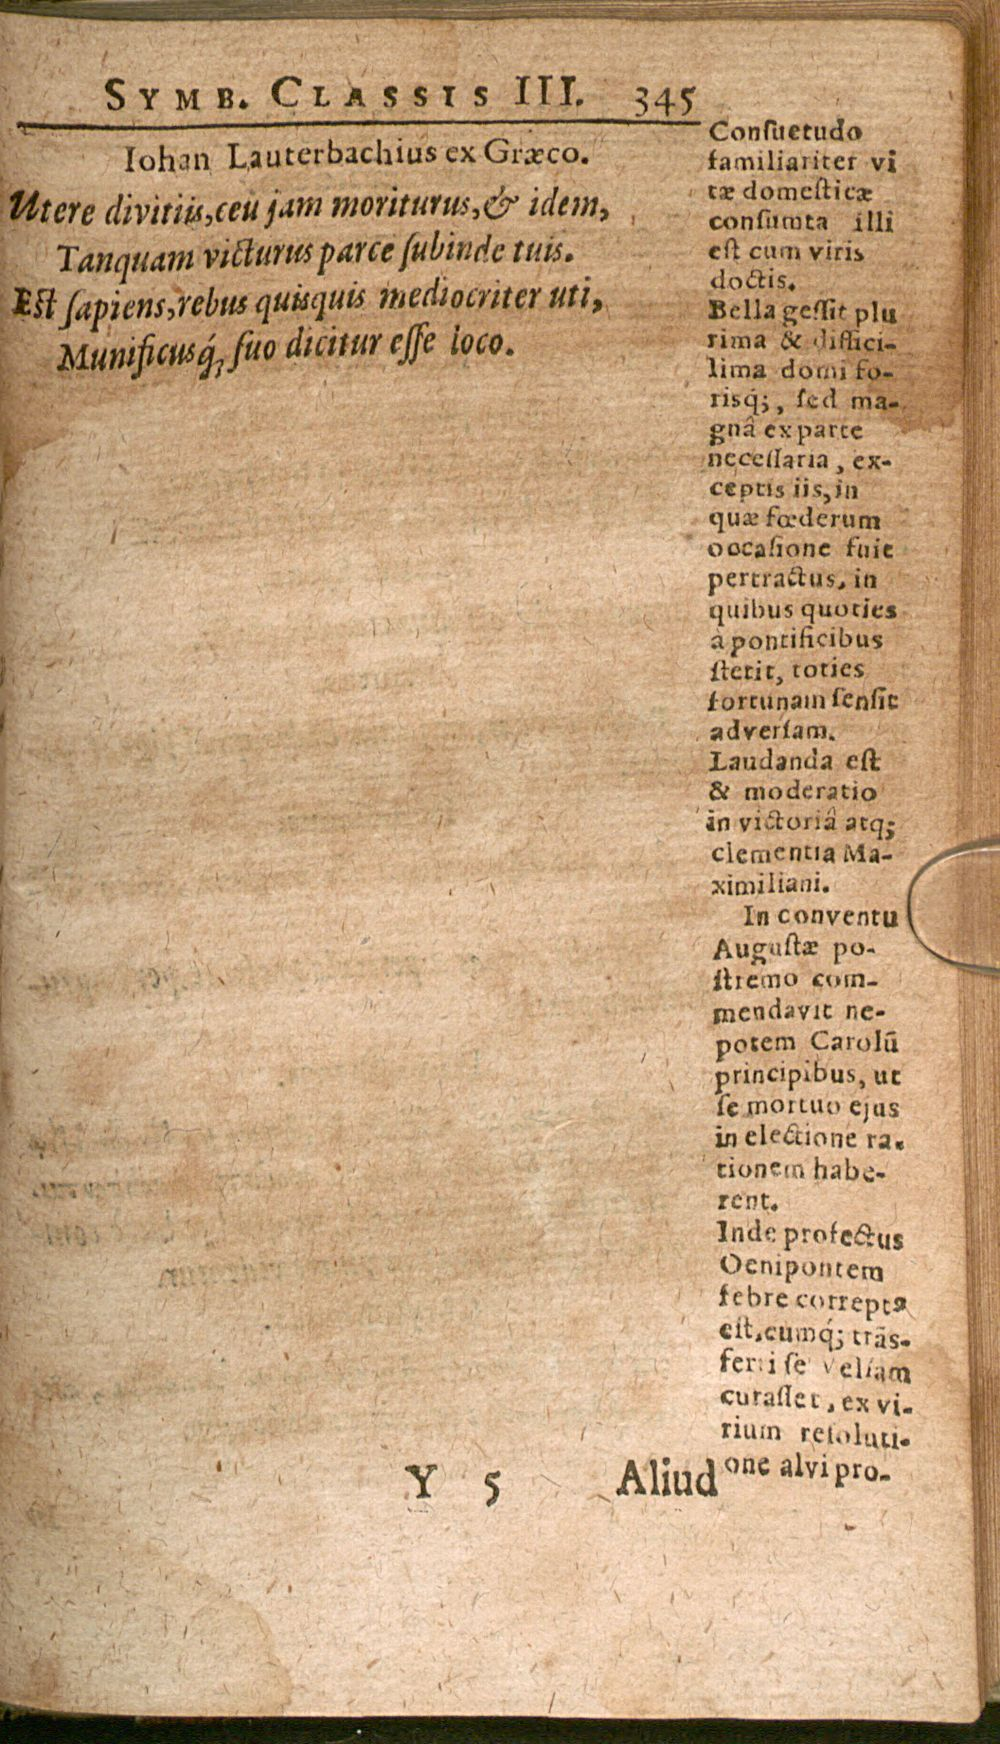 SYMB. CLASSIS III. 345
Iohan Lauterbachius ex Græco.
Utere divitiis, ceu jam moriturus, & idem,
Tanquam victurus parce ſubinde tuis.
Eſt ſapiens, rebus quisquis mediocriter uti,
Munificusq́; ſuo dicitur eſſe loco.
Conſuetudo
familiariter vi
tæ domeſticæ
conſumta illi
eſt cum viris
doctis.
Bella geſſit plu
rima & difſici-
lima domi fo-
risq́;, ſed ma-
gnâ ex parte
neceſſaria, ex-
ceptis iis, in
quæ fœderum
occaſione fuit
pertractus, in
quibus quoties
à pontificibus
ſtetit, toties
fortunam ſenſit
adverſam.
Laudanda eſt
& moderatio
in victoriâ atq;
clementia Ma-
ximiliani.
In conventu
Auguſtæ po-
ſtremo com-
mendavit ne-
potem Carolū
principibus, ut
ſe mortuo ejus
in electione ra-
tionem habe-
rent.
Inde profectus
Oenipontem
febre correptꝰ
eſt, cumq́; trãs-
ferri ſe Velſam
curaſſet, ex vi-
rium reſoluti-
one alvi pro-
Y 5 Aliud